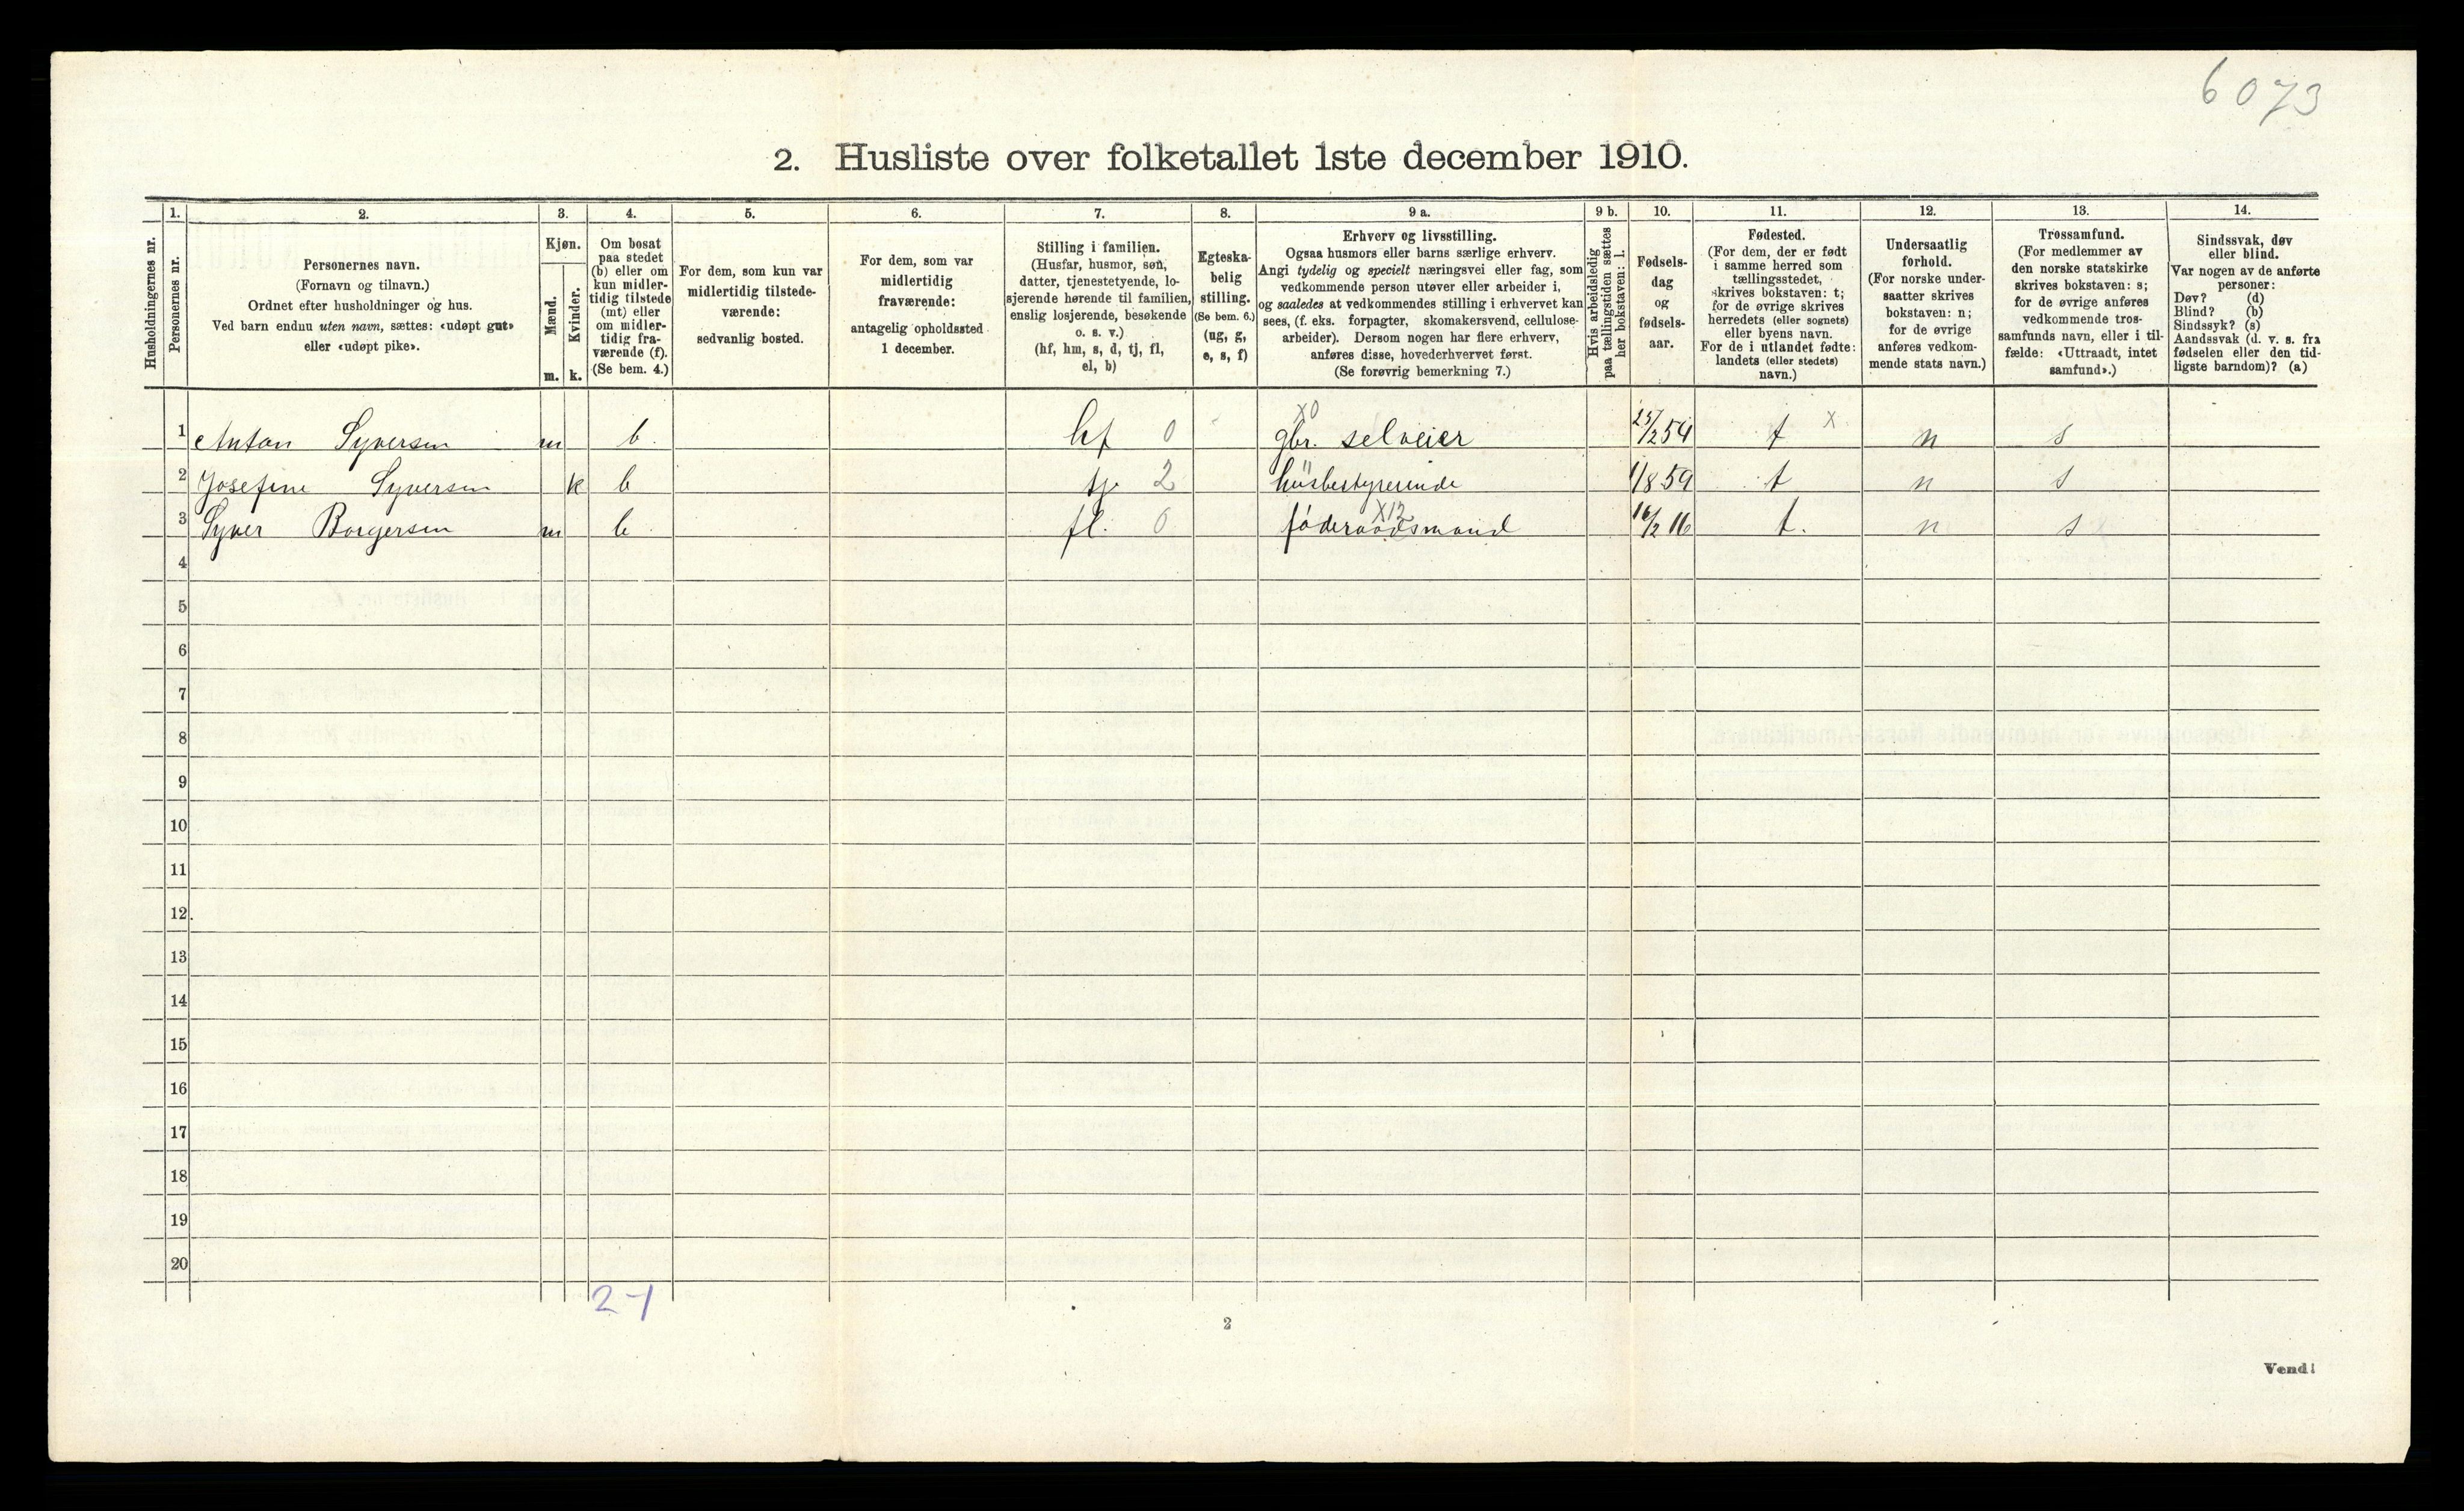 6073
2. Husliste over folketallet 1ste december 1910.
Husholdningernes nr.
1.
Personernes nr.
2.
Personernes navn.
(Fornavn og tilnavn.)
Ordnet efter husholdninger og hus.
Ved barn endnu uten navn, sættes: «udøpt gut»
eller «udøpt pike».
3.
Kjøn.
Mænd.
m.
Kvinder.
k.
4.
Om bosat
paa stedet
(b) eller om
kun midler-
tidig tilstede
(mt) eller
om midler-
tidig fra-
værende (f).
(Se bem. 4.)
5.
For dem, som kun var
midlertidig tilstede-
værende:
sedvanlig bosted.
6.
For dem, som var
midlertidig
fraværende:
antagelig opholdssted
1 december.
7.
Stilling i familien.
(Husfar, husmor, søn,
datter, tjenestetyende, lo-
sjerende hørende til familien,
enslig losjerende, besøkende
o. s. v.)
(hf, hm, s, d, tj, fl,
el, b)
8.
Egteska-
belig
stilling.
(Se bem. 6.)
(ug, g,
e, s, f)
9 a.
Erhverv og livsstilling.
Ogsaa husmors eller barns særlige erhverv.
Angi tydelig og specielt næringsvei eller fag, som
vedkommende person utøver eller arbeider i,
og saaledes at vedkommendes stilling i erhvervet kan
sees, (f. eks. forpagter, skomakersvend, cellulose-
arbeider). Dersom nogen har flere erhverv,
anføres disse, hovederhvervet først.
(Se forøvrig bemerkning 7.)
9 b.
Hvis arbeidsledig
paa tællingstiden sættes
her bokstaven: l.
10.
Fødsels-
dag
og
fødsels-
aar.
11.
Fødested.
(For dem, der er født
i samme herred som
tællingsstedet,
skrives bokstaven: t;
for de øvrige skrives
herredets (eller sognets)
eller byens navn.
For de i utlandet fødte:
landets (eller stedets)
navn.)
12.
Undersaatlig
forhold.
(For norske under-
saatter skrives
bokstaven: n;
for de øvrige
anføres vedkom-
mende stats navn.)
13.
Trossamfund.
(For medlemmer av
den norske statskirke
skrives bokstaven: s;
for de øvrige anføres
vedkommende tros-
samfunds navn, eller i til-
fælde: «Uttraadt, intet
samfund».)
14.
Sindssvak, døv
eller blind.
Var nogen av de anførte
personer:
Døv? (d)
Blind? (b)
Sindssyk? (s)
Aandssvak (d. v. s. fra
fødselen eller den tid-
ligste barndom)? (a)
1 Anton Syversen m b. hf 0 gbr. selveier X0 25/2 54 t x n s
2 Josefine Syversen k b tj 2 husbestyrerinde 1/8 59 t n s
3 Syver Borgersen m b fl. 0 föderaadsmand X12 16/2 16 t. n s
4
5
6
7
8
9
10
11
12
13
14
15
16
17
18
19
20
2-1
2
Vend!